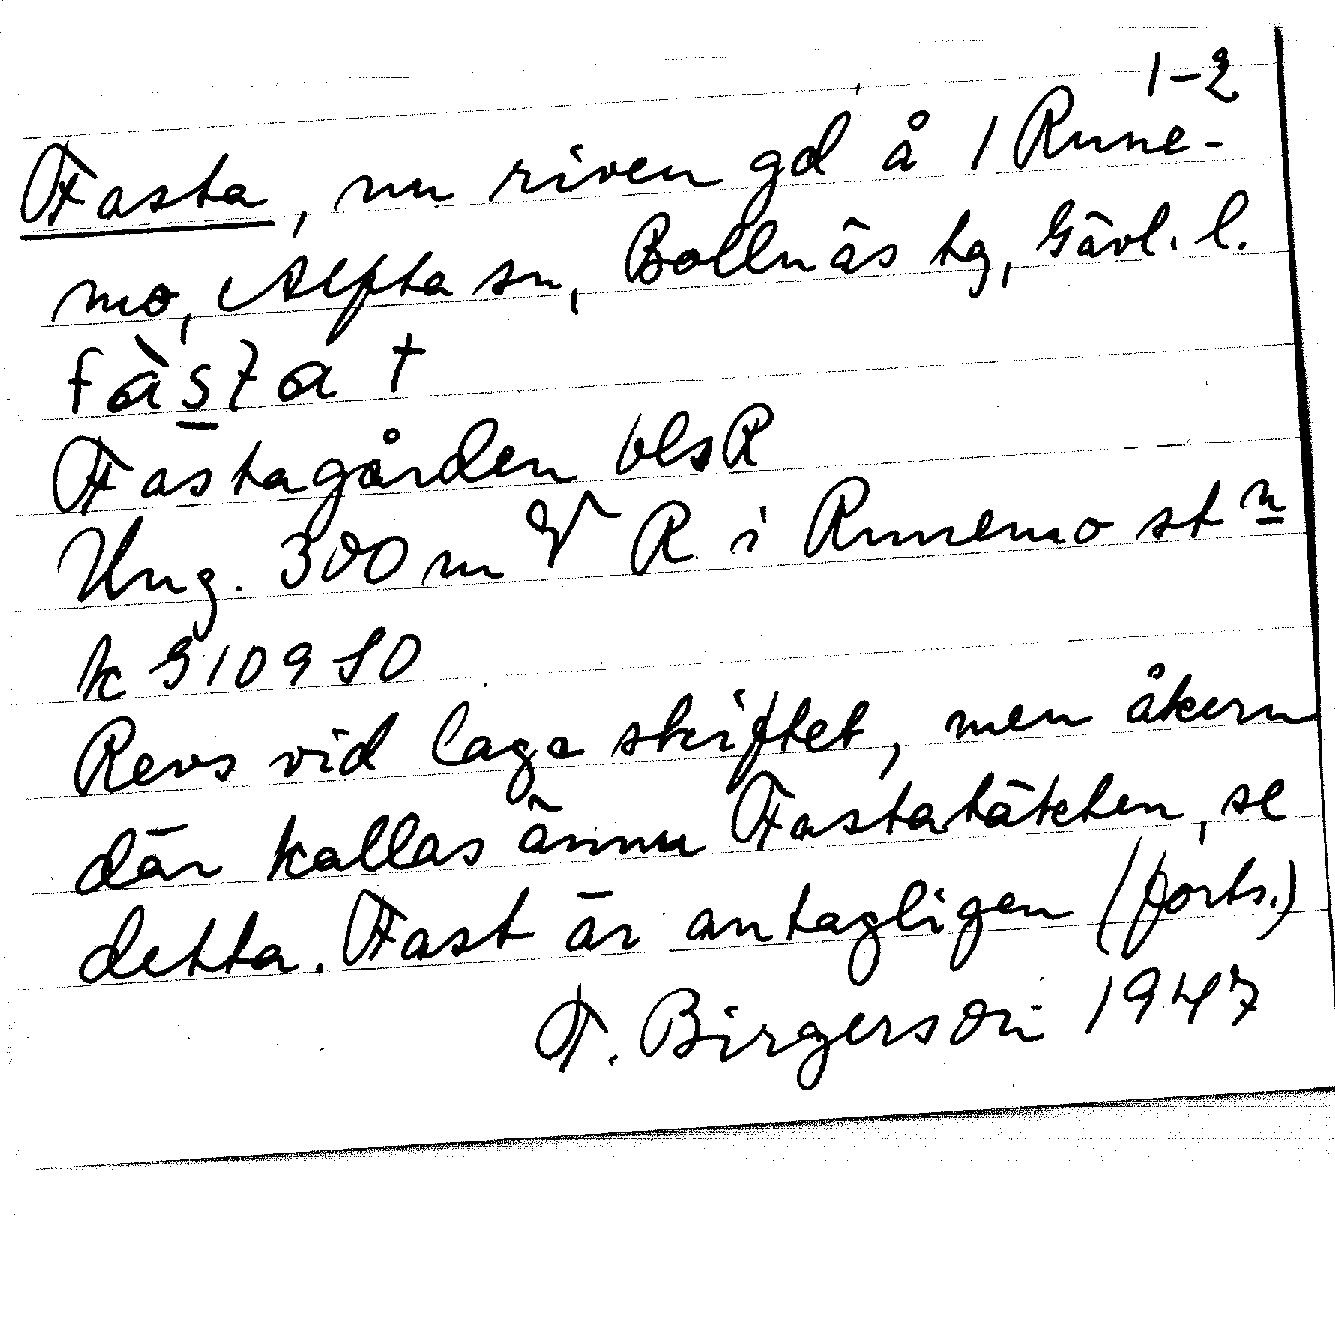 1-2
Fasta, nu riven gd å 1 Rune-
mo, Alfta sn, Bollnäs tg, Gävl. l.
fàsta †
Fastagården blsR
Ung. 300 m V R i Runemo st n
k 510980
Revs vid laga skiftet, men åkern
där kallas ännu Fastatäkten, se
detta. Fast är antagligen (forts.)
F. Birgerson 1947